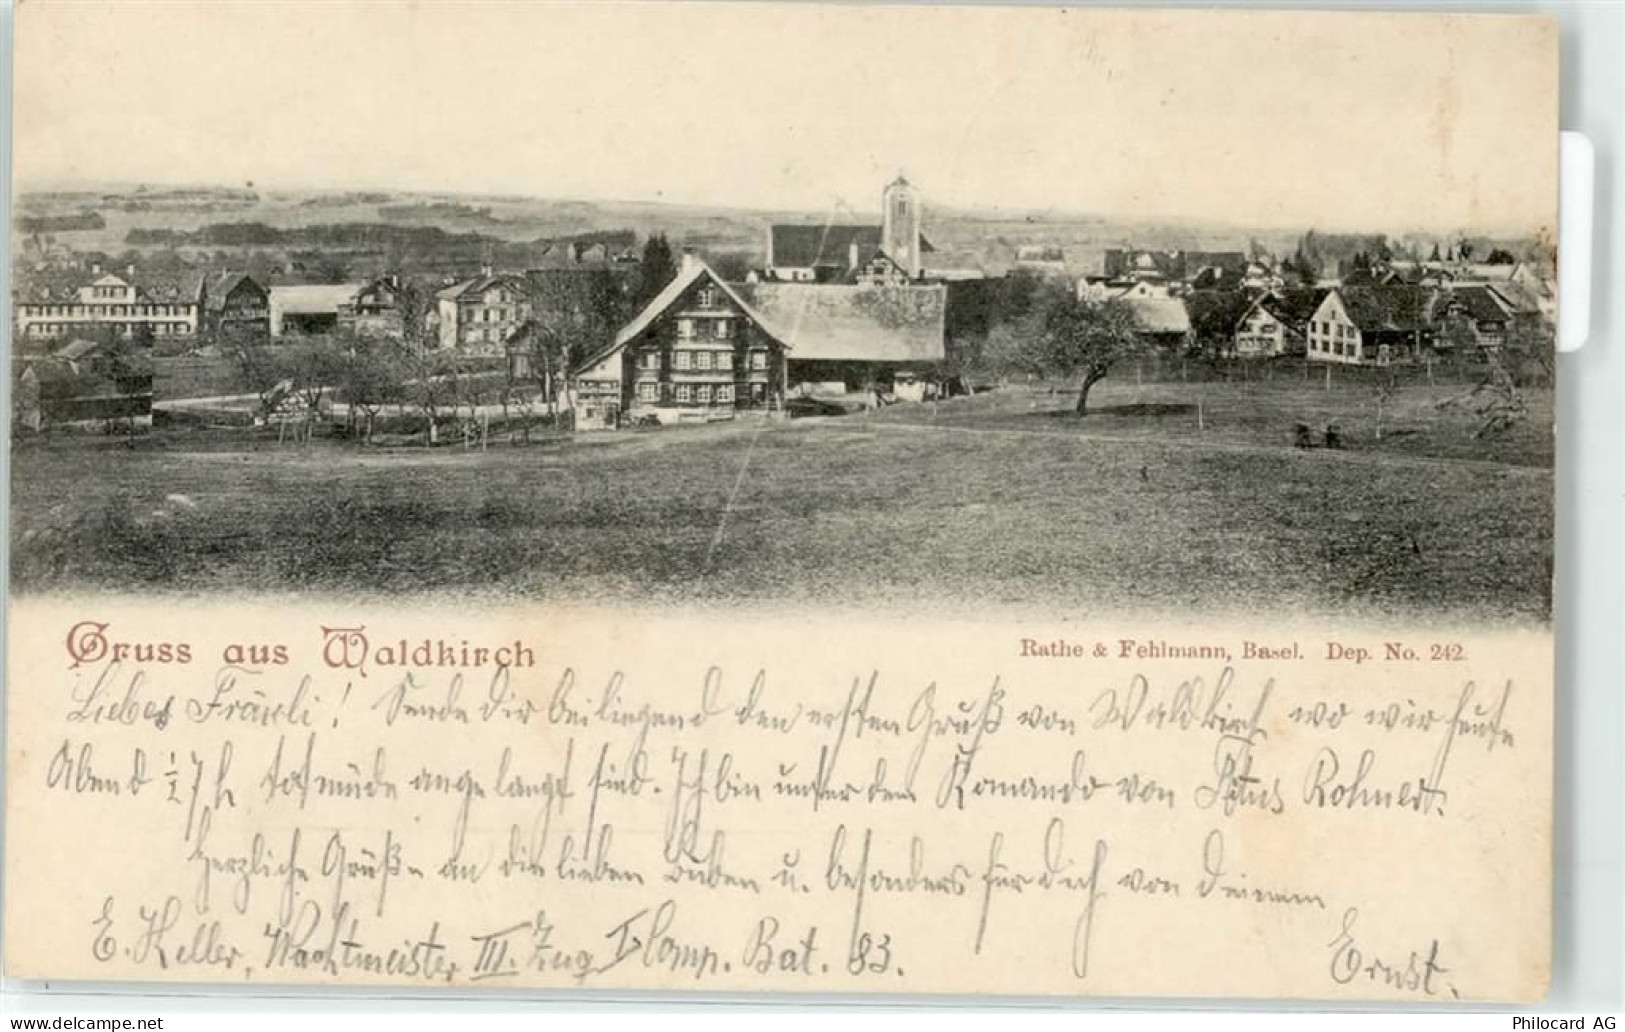 Gruss aus Waldkirch
Rathe & Fehlmann, Basel. Dep. No. 242.
Liebes Fräuli! Sende Dir beiliegend den ersten Gruß von Waldkirch wo wir heute
Abend ½ 7 h todmüde angelangt sind. Ich bin unter dem Komando von Rohner.
Herzliche Grüße an die lieben u. besonders für dich von Deinem
Ernst.
E. Keller, Wachtmeister III. Zug I Comp. Bat. 83.
Philocard AG
https://www.delcampe.net